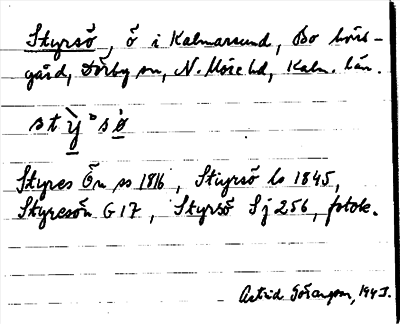 Styrsö, ö i Kalmarsund, Bo härs-
gård, Dörby sn, N. Möre hd, Kalm. län.
stỳ°sö̀
Styres Ön ss 1816, Styrsö ls 1845,
Styresön G 17, Styrsö Sj 256, fotok.
Astrid Göranson, 1943.